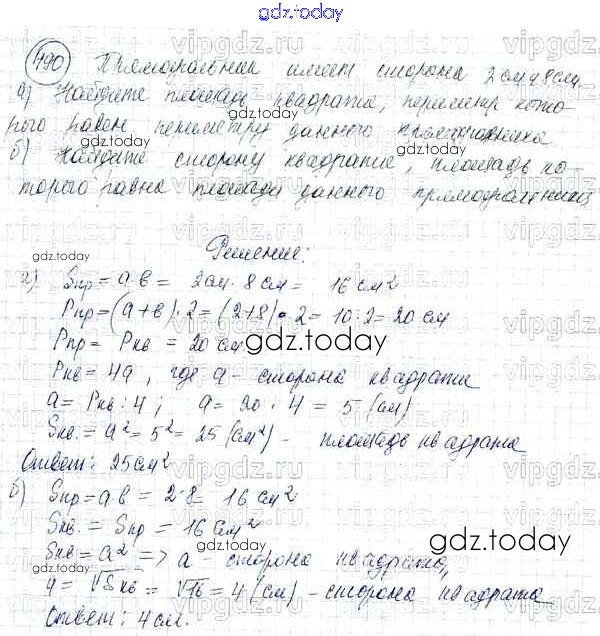 gdz.today
490 Прямоугольник имеет стороны 2 см и 8 см.
а) Найдите площадь квадрата, периметр кото-
рого равен периметру данного прямоугольника
б) Найдите сторону квадрата, площадь ко-
торого равна площади данного прямоугольника
Решение:
а) Sпр = a·в = 2см · 8 см = 16 см²
Pпр = (a + в) · 2 = (2+8) · 2 = 10 : 2 = 20 см
Pпр = Pкв = 20 см
Pкв = 4a, где a - сторона квадрата
a = Pкв : 4; a = 20 : 4 = 5 (см)
Sкв. = a² = 5² = 25 (см²) - площадь квадрата
Ответ: 25 см²
б) Sпр = a в = 2·8 = 16 см²
Sкв. = Sпр = 16 см²
Sкв = a² => a - сторона квадрата,
a = √Sкв = √16 = 4 (см) - сторона квадрата
Ответ: 4 см.
gdz.today
gdz.today
gdz.today
gdz.today
gdz.today
gdz.today
gdz.today
vipgdz.ru